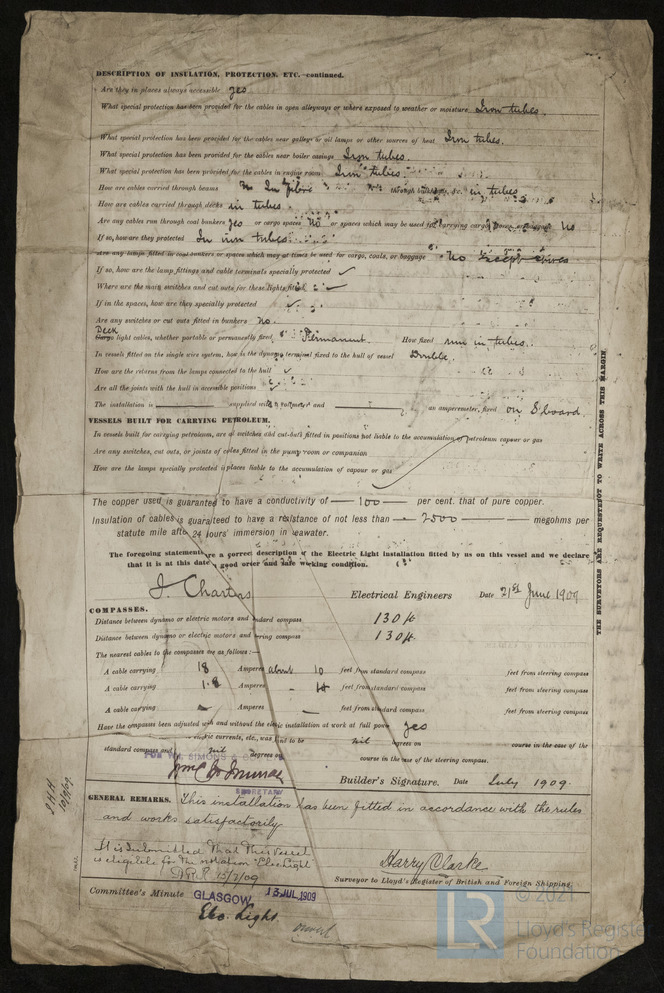 DESCRIPTION OF INSULATION, PROTECTION, ETC.—continued.
Are they in places always accessible yes
What special protection has been provided for the cables in open alleyways or where exposed to weather or moisture Iron tubes.
What special protection has been provided for the cables near galleys or oil lamps or other sources of heat Iron tubes.
What special protection has been provided for the cables near boiler casings Iron tubes.
What special protection has been provided for the cables in engine room Iron tubes.
How are cables carried through beams In fibre through bulkheads, &c. in tubes
How are cables carried through decks in tubes.
Are any cables run through coal bunkers yes or cargo spaces no or spaces which may be used for carrying cargo, stores, or baggage No
If so, how are they protected In iron tubes
Are any lamps fitted in coal bunkers or spaces which may at times be used for cargo, coals, or baggage No
If so, how are the lamp fittings and cable terminals specially protected ✓
Where are the main switches and cut outs for these lights fitted ✓
If in the spaces, how are they specially protected ✓
Are any switches or cut outs fitted in bunkers no.
Deck
Cargo light cables, whether portable or permanently fixed Permanent. How fixed run in tubes.
In vessels fitted on the single wire system, how is the dynamo terminal fixed to the hull of vessel Double.
How are the returns from the lamps connected to the hull ✓
Are all the joints with the hull in accessible positions ✓
The installation is supplied with a voltmeter and an amperemeter, fixed on S'board.
VESSELS BUILT FOR CARRYING PETROLEUM.
In vessels built for carrying petroleum, are all switches and cut-outs fitted in positions not liable to the accumulation of petroleum vapour or gas
Are any switches, cut outs, or joints of cables fitted in the pump room or companion
How are the lamps specially protected in places liable to the accumulation of vapour or gas
The copper used is guaranteed to have a conductivity of — 100 — per cent. that of pure copper.
Insulation of cables is guaranteed to have a resistance of not less than — 2500 — megohms per
statute mile after 24 hours' immersion in seawater.
The foregoing statements are a correct description of the Electric Light installation fitted by us on this vessel and we declare
that it is at this date in good order and safe working condition.
J. Charters Electrical Engineers Date 21st June 1909
COMPASSES.
Distance between dynamo or electric motors and standard compass 130 ft
Distance between dynamo or electric motors and steering compass 130 ft
The nearest cables to the compasses are as follows:—
A cable carrying 18 Amperes about 10 feet from standard compass feet from steering compass
A cable carrying 1.8 Amperes feet from standard compass feet from steering compass
A cable carrying — Amperes — feet from standard compass feet from steering compass
Have the compasses been adjusted with and without the electric installation at work at full power yes
electric currents, etc., was found to be nil degrees on course in the case of the
standard compass and nil degrees on course in the case of the steering compass.
FOR WM. SIMONS &
SECRETARY
Builder's Signature. Date July 1909.
GENERAL REMARKS. This installation has been fitted in accordance with the rules
and works satisfactorily
It is submitted that this vessel
is eligible for the notation "Elec Light"
15/7/09
Harry Clarke
Surveyor to Lloyd's Register of British and Foreign Shipping.
Committee's Minute GLASGOW 13 JUL. 1909
Elec. Light.
THE SURVEYORS ARE REQUESTED NOT TO WRITE ACROSS THIS MARGIN
© 2021
LR
Lloyd's Register
Foundation